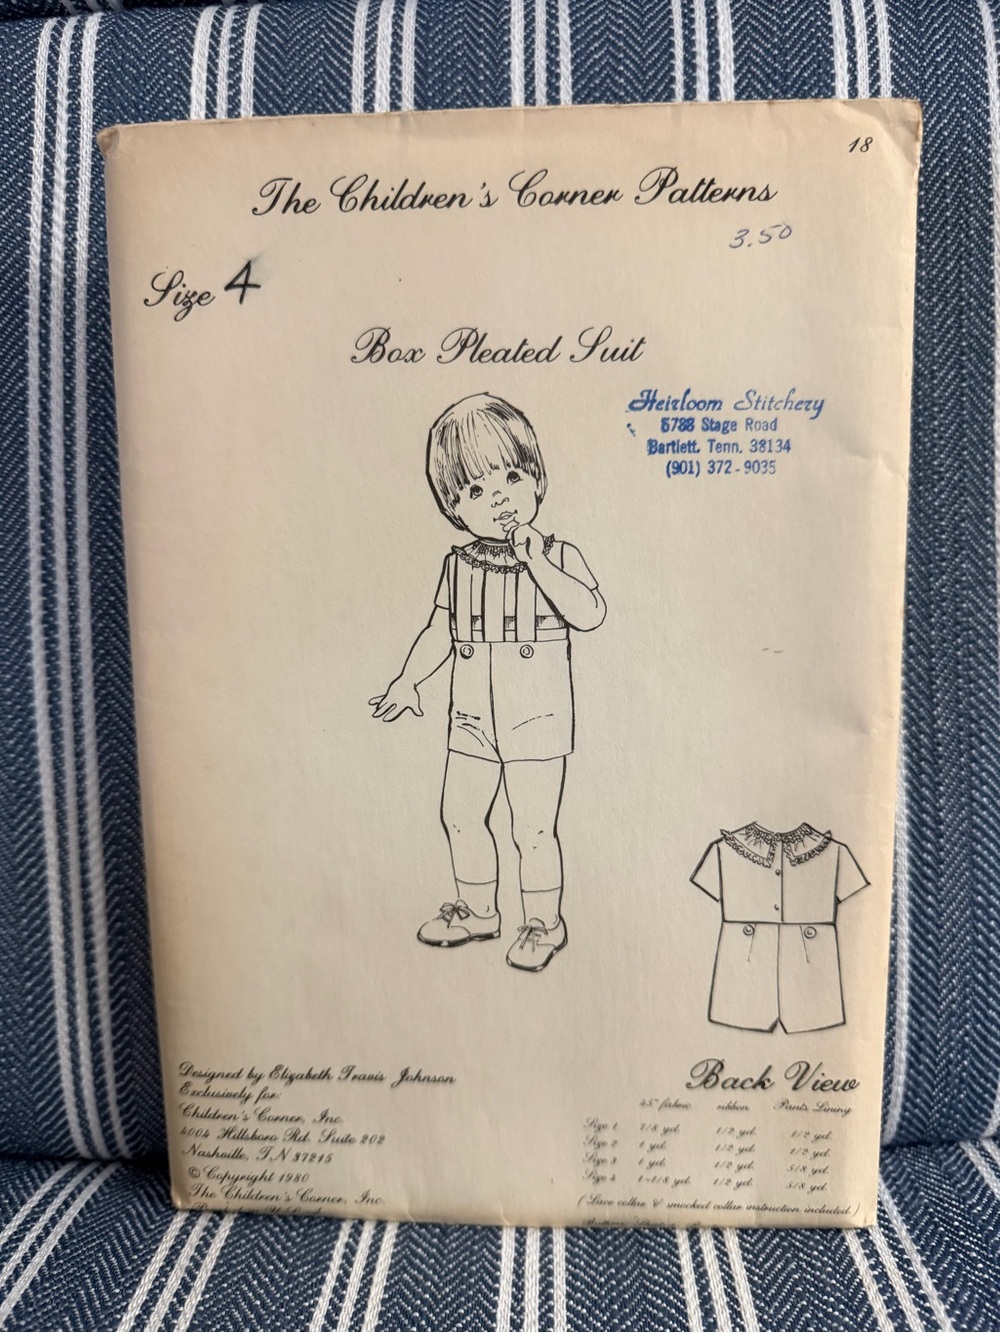 18
The Children's Corner Patterns
3.50
Size 4
Box Pleated Suit
Heirloom Stitchery
5788 Stage Road
Bartlett, Tenn. 38134
(901) 372-9035
Designed by Elizabeth Travis Johnson
Exclusively for:
Children's Corner, Inc.
4004 Hillsboro Rd. Suite 202
Nashville, TN 37215
© Copyright 1980
The Children's Corner, Inc.
Back View
45" fabric ribbon Pants Lining
Size 1 7/8 yd. 1/2 yd. 1/2 yd.
Size 2 1 yd. 1/2 yd. 1/2 yd.
Size 3 1 yd. 1/2 yd. 5/8 yd.
Size 4 1-1/8 yd. 1/2 yd. 5/8 yd.
(Lace collar & smocked collar instruction included.)